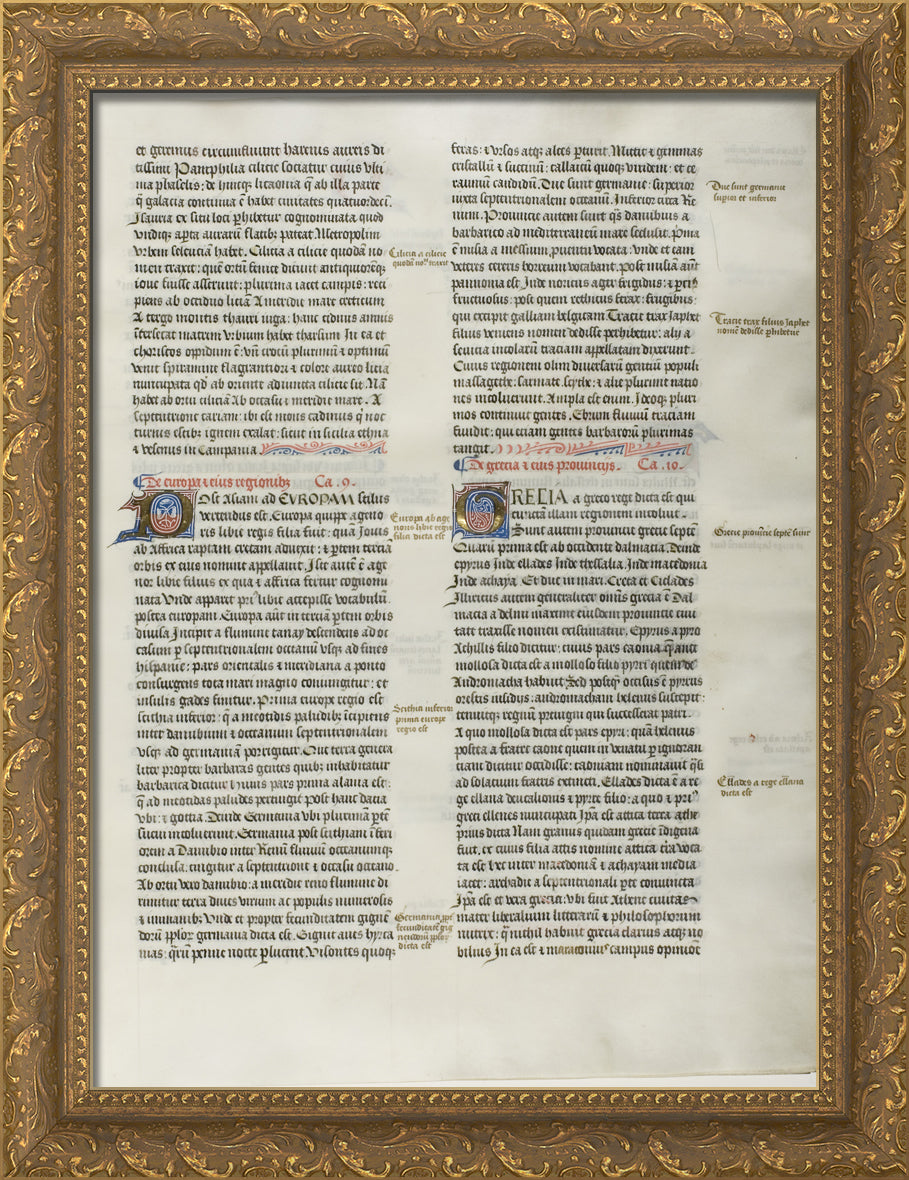 et geminus circumfluunt harenis aureis di
tissimi Pamphilia cilicie sociatur cuius vlti
ma phaselis: de hincq; licaonia q̄ ab illa parte
q̄ galacia continua ē habet ciuitates quatuordeci.
Isauria ex situ loci ꝑhibetur cognominata quod
vndiq; aꝑta aurarū flatib; pateat Metropolim
vrbem seleuciam habet. Cilicia a cilicie quodā no
men traxit: quē ortū fenice dicunt antiquioresq;
ioue fuisse asserunt: plurima iacet campis: reci
piens ab occiduo liciā A meridie mare creticum
A tergo montis thauri iuga: hanc cidnus amnis
ītersecat matrem vrbium habet tharsum In ea et
choriscos oppidum ē: vn̄ crocū plurimū & optimū
venit spiramine flagrantior & colore aureo licia
nuncupata qd̄ ab oriente adiuncta cilicie sit. Nā
habet ab ortu ciliciā Ab occasu & meridie mare. A
septentrione cariam: ibi est mons cadinus q̇ noc
turnis estib; ignem exalat: sicut in sicilia ethna
& vesenus in Campania.
De europa & eius regionibz Ca. 9.
Post Asiam ad EVROPAM stilus
vertendus est. Europa quipꝑe ageno
ris libie regis filia fuit: quā Iouis
ab Affrica raptam cretam aduexit: & ꝑtem terciā
orbis ex eius nomine appellauit. Iste autē ē age
nor libie filius ex qua & affrica fertur cognomi
nata Vnde apparet priꝰ libie accepisse vocabulū.
postea europam. Europa aūt in terciā ꝑtem orbis
diuisa Incipit a flumine tanay descendens ad oc
casum ꝑ septentrionalem occeanū vsq; ad fines
hispanie: pars orientalis & meridiana a ponto
consurgens tota mari magno coniungitur: et
insulis gades finitur. Prima europe regio est
scithia inferior: q̄ a meotidis paludib; īcipiens
inter danubium & occeanum septentrionalem
vsq; ad germaniā porrigitur. Que terra genera
liter propter barbaras gentes quib; inhabitatur
barbarica dicitur huius pars prima alania est:
q̄ ad meotidas paludes pertingit post hanc dacia
vbi: & gottia. Deinde Germania vbi plurimā ꝑtē
sueui incoluerunt. Germania post scithiam īferi
orem a Danubio inter Renū fluuiū occeanumq;
conclusa. cingitur a septentrione & occasu occeano.
Ab ortu vero danubio: a meridie reno flumine di
rimitur terra diues virum ac populis numerosis
& inmanib; Vnde et propter fecunditatem gignē
dorū pplor̄ germania dicta est. Gignit aues hyrca
nias: quarū penne nocte ꝑlucent. Visontes quoq;
Cilicia a cilicie
quodā noīe traxit
Europa ab age
noris libie regis
filia dicta est
Scithia inferior
prima europe
regio est
Germania ꝓpt̄
fecunditatē gig
nendorū pplor̄
dicta est
feras: & vrsos atq; alces ꝑturit. Mittit & gemmas
cristallū & succinū: callaicū quoq; viridem: et ce
raunium candidū. Due sunt germanie: superior
iuxta septentrionalem occeanū. Inferior circa Re
num. Prouincie autem sunt q̄s danubius a
barbarico ad mediterraneū mare seclusit. Prima
ē misia a messium prouentu vocata: vnde et eam
veteres cereris horreum vocabant. Post misiā aūt
pannonia est Inde noricus ager frigidus: & ꝑcis
fructuosus: post quem rethicus ferax: frugibus:
qui excipit galliam belgicam Tracie trax Iaphet
filius veniens nomen dedisse perhibetur: alij a
seuicia incolarū traciam appellatam dixerunt.
Cuius regionem olim diuersarū gentiū populi
massagethe: sarmate scythe: & alie plurime natio
nes incoluerunt. Ampla est enim. Ideoq; pluri
mos continuit gentes. Ebrum fluuiū traciam
fundit: qui etiam gentes barbarorū plurimas
tangit.
De grecia & eius prouincijs. Ca. 10.
GRECIA a greco rege dicta est qui
cunctam illam regionem incoluit.
Sunt autem prouincie grecie septē
Quarū prima est ab occidente dalmacia. Deinde
epyrus Inde ellades Inde thessalia. Inde macedonia
Inde achaya. Et due in mari. Creta et Ciclades
Illiricus autem generaliter omīs grecia ē Dal
macia a delmi maxime eiusdem prouincie ciui
tate traxisse nomen existimatur. Epyrus a pyro
Achillis filio dicitur: cuius pars caonia q̄ ante
mollosa dicta est a molloso filio pyri quem de
Andromacha habuit Sed postq̄ occisus ē pyrrus
orestis insidijs: andromacham helenus suscepit:
tenuitq; regnū priuigni qui successerat patri.
A quo mollosa dicta est pars epyri: quā helenus
postea a fratre caone quem in venatu ꝑ ignoran
ciam dicitur occidisse: caoniam nominauit q̄si
ad solacium fratris extincti. Ellades dicta ē a re
ge ellana deucalionis & pyrre filio: a quo & priꝰ
greci ellenes nuncupati Ip̄a est attica terra athe
prius dicta Nam granus quidam grecie īdigena
fuit. ex cuius filia attis nomine attica t̄ra voca
ta est hec inter macedoniā & achayam media
iacet: archadie a septentrionali ꝑte coniuncta
Ip̄a est et vera grecia: vbi fuit Athene ciuitas
mater liberalium litterarū & philosophorum
nutrix: q̄ nichil habuit grecia clarius atq; no
bilius In ea est & maratoniusꝰ campus opinioē
Due sunt germanie
supior et inferior
Tracie trax filius Iaphet
nomē dedisse ꝑhibetur
Grecie prouincie septē sunt
Ellades a rege ellana
dicta est